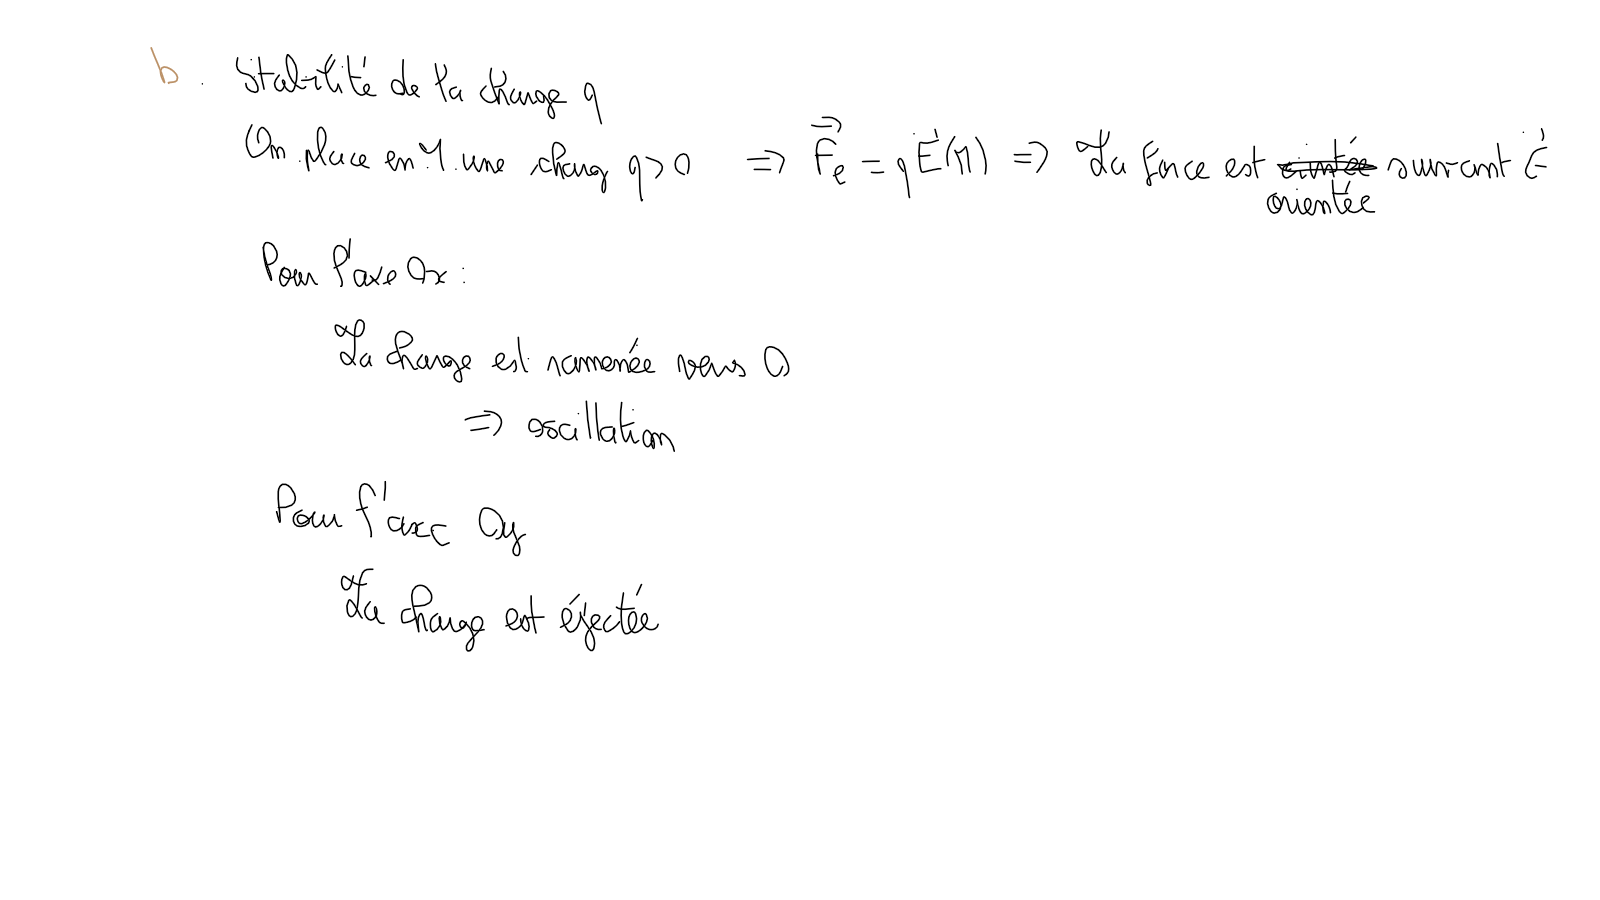 b. Stabilité de la charge q
On place en M une charg q>0 => F⃗e = q E⃗(M) => La force est orientée suivant E⃗
Pour l'axe Ox :
La charge est ramenée vers O
=> oscillation
Pour l'axe Oy
La charge est éjectée